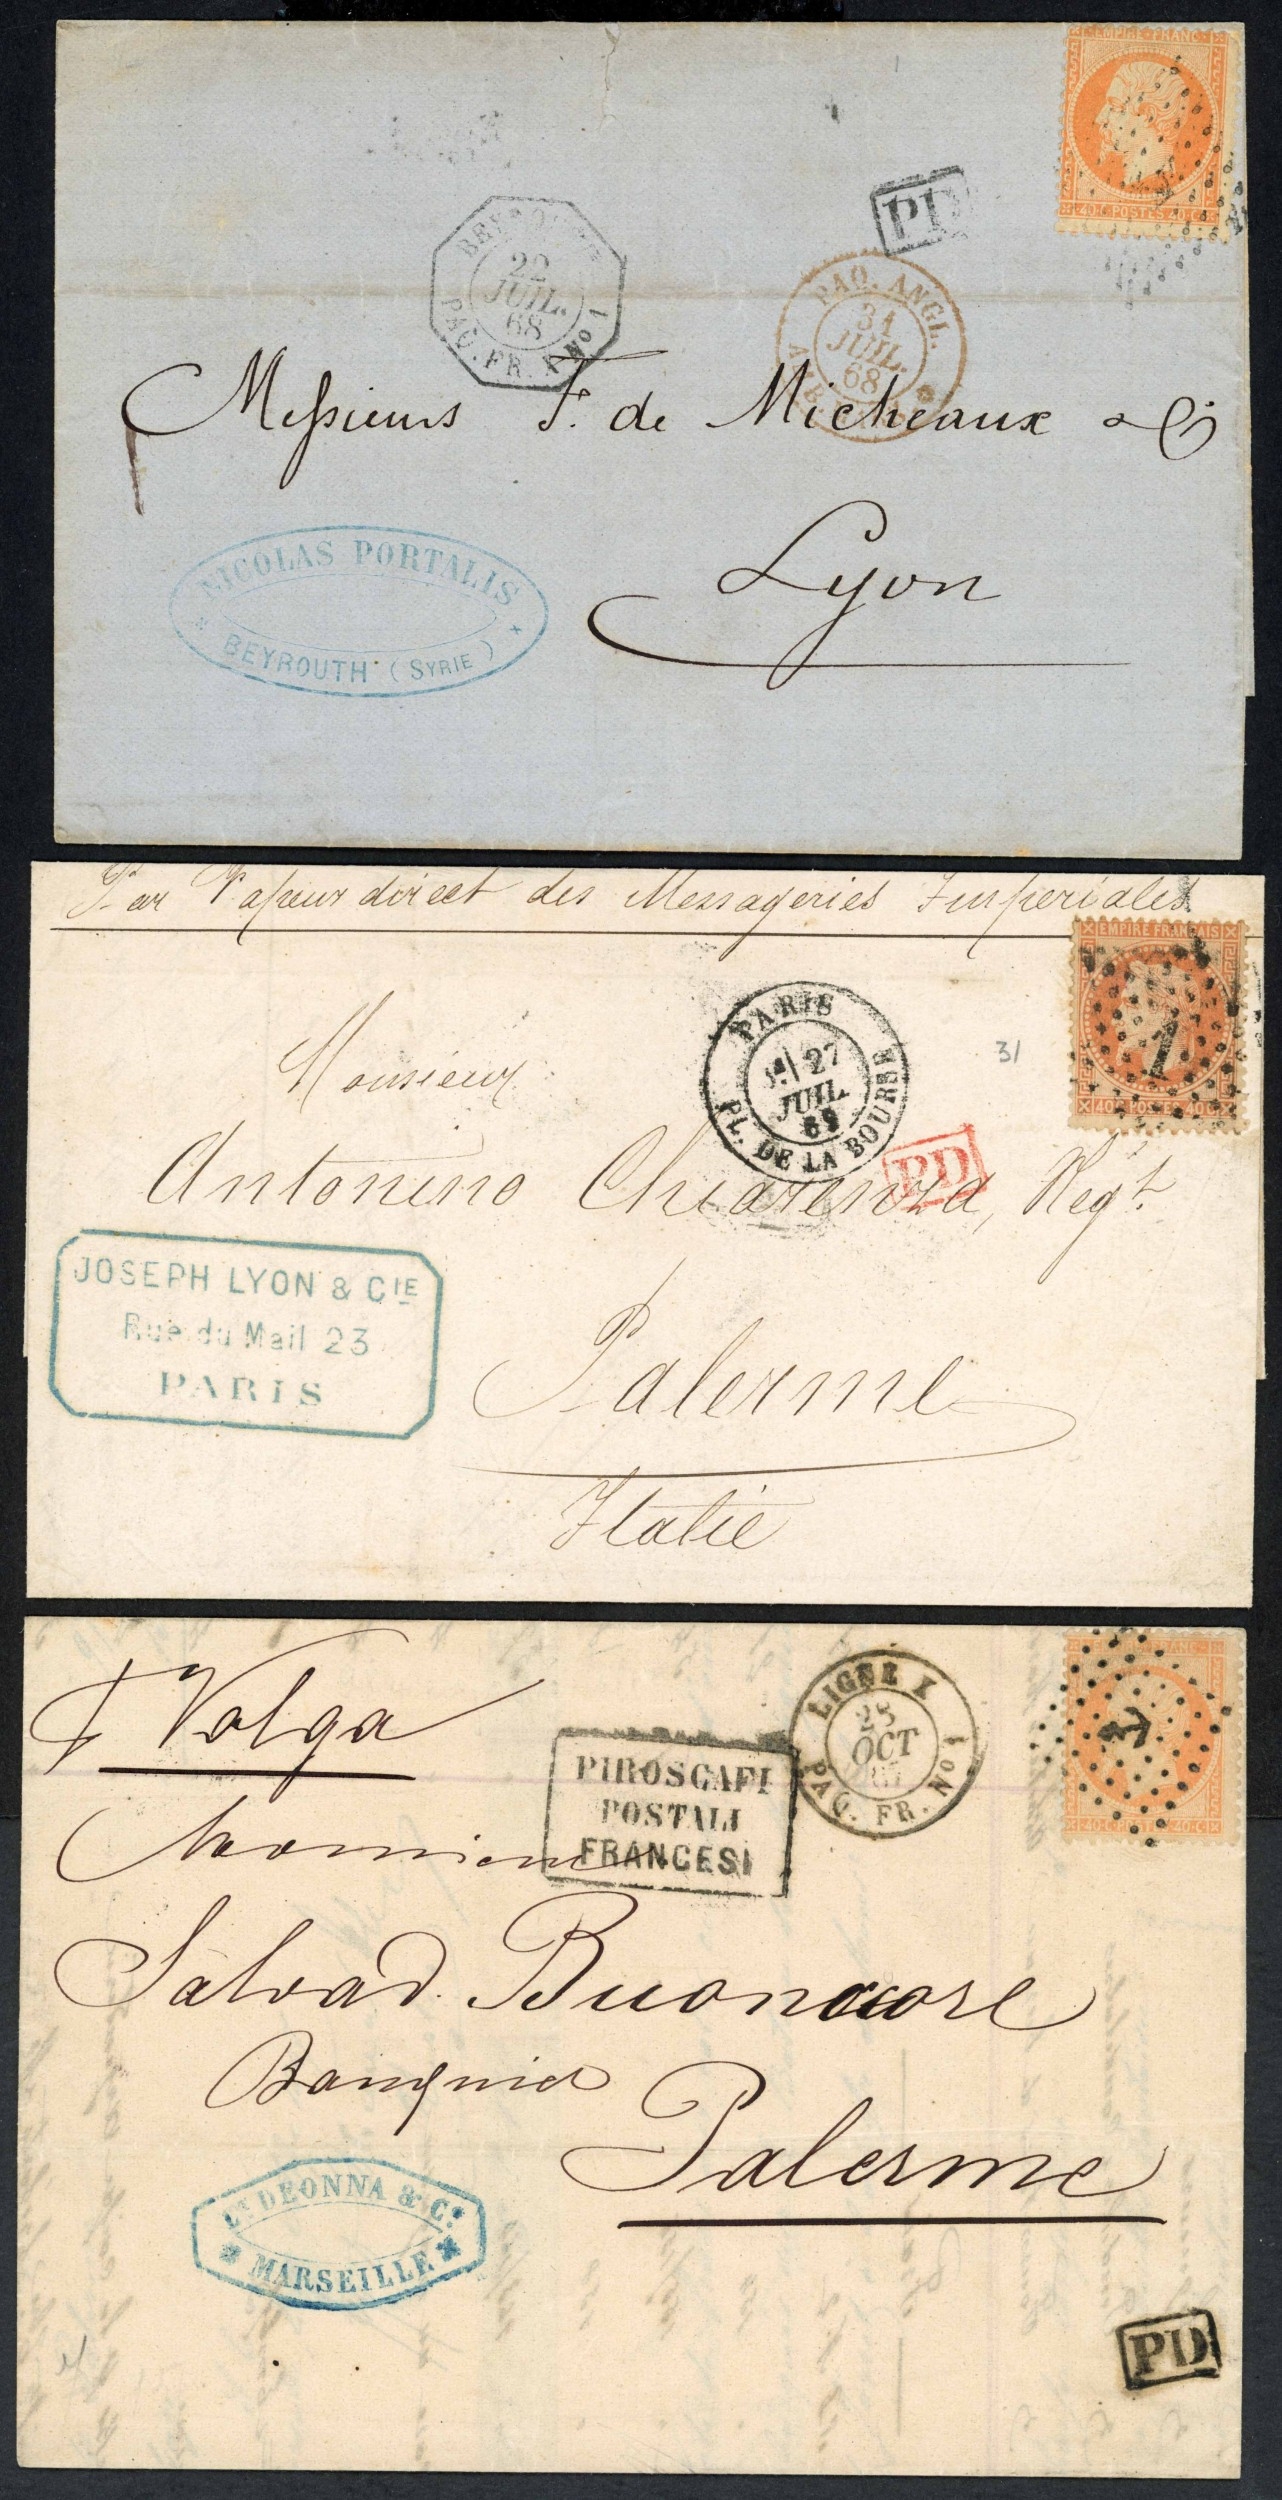 EMPIRE FRANC
40 C POSTES 40 C
PD
22
JUIL.
68
PAQ. FR. X No 1
PAQ. ANGL.
31
JUIL.
68
Messieurs F. de Micheaux & Ci
Lyon
NICOLAS PORTALIS
BEYROUTH (SYRIE)
Par Vapeur direct des Messageries Imperiales
EMPIRE FRANÇAIS
1
40 C POSTES 40 C
PARIS
27
JUIL.
69
PL. DE LA BOURSE
31
PD
Monsieur
Antonino Chiarenza, Negt.
JOSEPH LYON & CIE
Rue du Mail 23
PARIS
Palerme
Italie
Volga
LIGNE X
25
OCT
67
PAQ. FR. No 1
40 C POSTES 40 C
PIROSCAFI
POSTALI
FRANCESI
Monsieur
Salvad. Buonocore
Banquier
Palerme
Ls. DEONNA & Ce.
MARSEILLE
PD